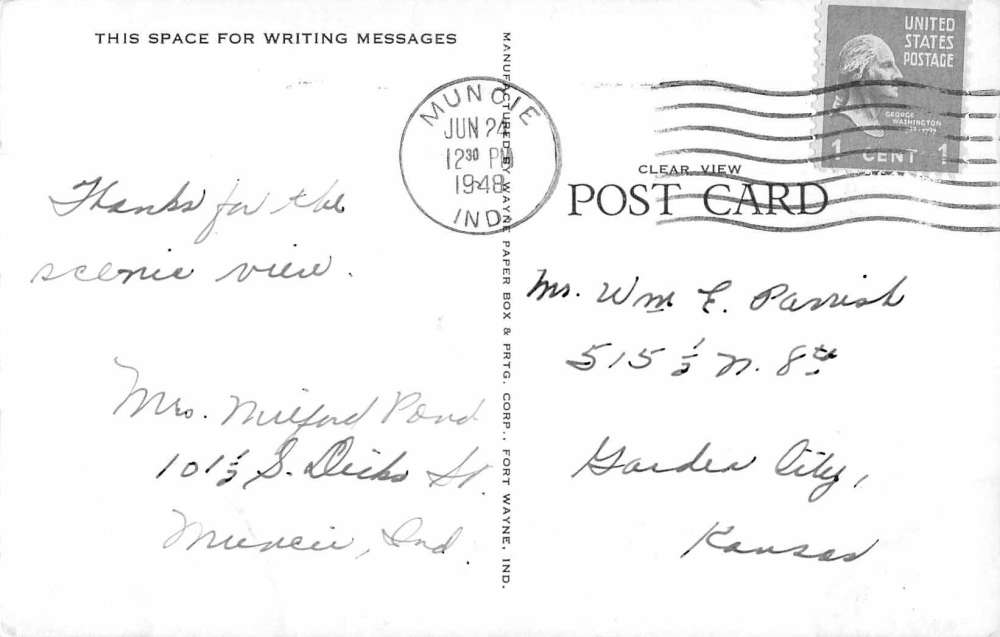 THIS SPACE FOR WRITING MESSAGES
Thanks for the
scenic view.
Mrs. Milford Pond
101½ S. Dicks St.
Muncie, Ind.
MANUFACTURED BY WAYNE PAPER BOX & PRTG. CORP., FORT WAYNE, IND.
MUNCIE
JUN 24
12 30 PM
1948
IND.
UNITED
STATES
POSTAGE
GEORGE
WASHINGTON
1 CENT 1
CLEAR VIEW
POST CARD
Mr. Wm E. Parrish
515½ N. 8th
Garden City,
Kansas